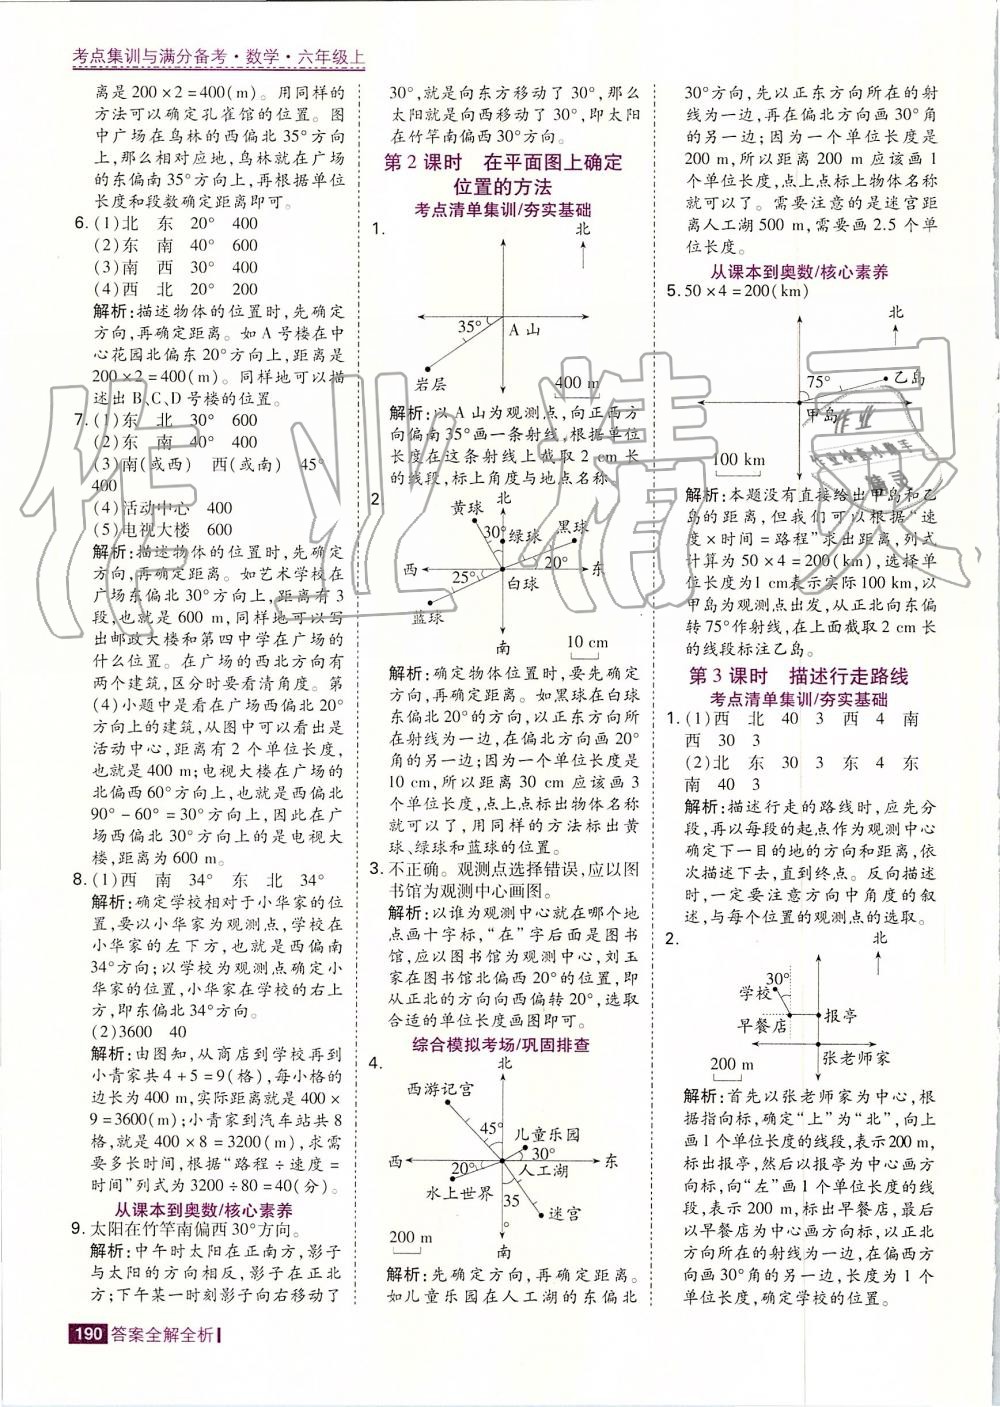 考点集训与满分备考·数学·六年级上
离是200×2=400(m)。用同样的
方法可以确定孔雀馆的位置。图
中广场在鸟林的西偏北35°方向
上,那么相对应地,鸟林就在广场
的东偏南35°方向上,再根据单位
长度和段数确定距离即可。
6. (1)北 东 20° 400
(2)东 南 40° 600
(3)南 西 30° 400
(4)西 北 20° 200
解析:描述物体的位置时,先确定
方向,再确定距离。如A号楼在中
心花园北偏东20°方向上,距离是
200×2=400(m)。同样地可以描
述出B、C、D号楼的位置。
7. (1)东 北 30° 600
(2)东 南 40° 400
(3)南(或西) 西(或南) 45°
400
(4)活动中心 400
(5)电视大楼 600
解析:描述物体的位置时,先确定
方向,再确定距离。如艺术学校在
广场东偏北30°方向上,距离有3
段,也就是600 m,同样地可以写
出邮政大楼和第四中学在广场的
什么位置。在广场的西北方向有
两个建筑,区分时要看清角度。第
(4)小题中是看在广场西偏北20°
方向上的建筑,从图中可以看出是
活动中心,距离有2个单位长度,
也就是400 m;电视大楼在广场的
北偏西60°方向上,也就是西偏北
90°-60°=30°方向上,因此在广
场西偏北30°方向上的是电视大
楼,距离为600 m。
8. (1)西 南 34° 东 北 34°
解析:确定学校相对于小华家的位
置,要以小华家为观测点,学校在
小华家的左下方,也就是西偏南
34°方向;以学校为观测点确定小
华家的位置,小华家在学校的右上
方,即东偏北34°方向。
(2)3600 40
解析:由图知,从商店到学校再到
小青家共4+5=9(格),每小格的
边长为400 m,实际距离就是400
×9=3600(m);小青家到汽车站共8
格,就是400×8=3200(m),求需
要多长时间,根据“路程÷速度=
时间”列式为3200÷80=40(分)。
从课本到奥数/核心素养
9. 太阳在竹竿南偏西30°方向。
解析:中午时太阳在正南方,影子
与太阳的方向相反,影子在正北
方;下午某一时刻影子向右移动了
30°,就是向东方移动了30°,那么
太阳就是向西移动了30°,即太阳
在竹竿南偏西30°方向。
第2课时 在平面图上确定
位置的方法
考点清单集训/夯实基础
1.
北
35°
A山
岩层
400 m
解析:以A山为观测点,向正西方
向偏南35°画一条射线,根据单位
长度在这条射线上截取2 cm长
的线段,标上角度与地点名称。
2.
北
黄球
30°
绿球
黑球
西
20°
东
25°
白球
蓝球
南
10 cm
解析:确定物体位置时,要先确定
方向,再确定距离。如黑球在白球
东偏北20°的方向,以正东方向所
在射线为一边,在偏北方向画20°
角的另一边;因为一个单位长度是
10 cm,所以距离30 cm应该画3
个单位长度,点上点标出物体名称
就可以了,用同样的方法标出黄
球、绿球和蓝球的位置。
3. 不正确。观测点选择错误,应以图
书馆为观测中心画图。
解析:以谁为观测中心就在哪个地
点画十字标,“在”字后面是图书
馆,应以图书馆为观测中心,刘玉
家在图书馆北偏西20°的位置,即
从正北的方向向西偏转20°,选取
合适的单位长度画图即可。
综合模拟考场/巩固排查
4.
北
西游记宫
45°
儿童乐园
30°
西
东
20°
人工湖
水上世界
35
°
迷宫
200 m
南
解析:先确定方向,再确定距离。
如儿童乐园在人工湖的东偏北
30°方向,先以正东方向所在的射
线为一边,再在偏北方向画30°角
的另一边;因为一个单位长度是
200 m,所以距离200 m应该画1
个单位长度,点上点标上物体名称
就可以了。需要注意的是迷宫距
离人工湖500 m,需要画2.5个单
位长度。
从课本到奥数/核心素养
5. 50×4=200(km)
北
75°
乙岛
甲岛
100 km
解析:本题没有直接给出甲岛和乙
岛的距离,但我们可以根据“速
度×时间=路程”求出距离,列式
计算为50×4=200(km),选择单
位长度为1 cm表示实际100 km,以
甲岛为观测点出发,从正北向东偏
转75°作射线,在上面截取2 cm长
的线段标注乙岛。
第3课时 描述行走路线
考点清单集训/夯实基础
1. (1)西 北 40 3 西 4 南
西 30 3
(2)北 东 30 3 东 4 东
南 40 3
解析:描述行走的路线时,应先分
段,再以每段的起点作为观测中心
确定下一目的地的方向和距离,依
次描述下去,直到终点。反向描述
时,一定要注意方向中角度的叙
述,与每个位置的观测点的选取。
2.
北
30°
学校
早餐店
报亭
张老师家
200 m
解析:首先以张老师家为中心,根
据指向标,确定“上”为“北”,向上
画1个单位长度的线段,表示200 m,
标出报亭,然后以报亭为中心画方
向标,向“左”画1个单位长度的线
段,表示200 m,标出早餐店,最后
以早餐店为中心画方向标,以正北
方向所在的射线为一边,在偏西方
向画30°角的另一边,长度为1个
单位长度,确定学校的位置。
190 答案全解全析
作业精灵